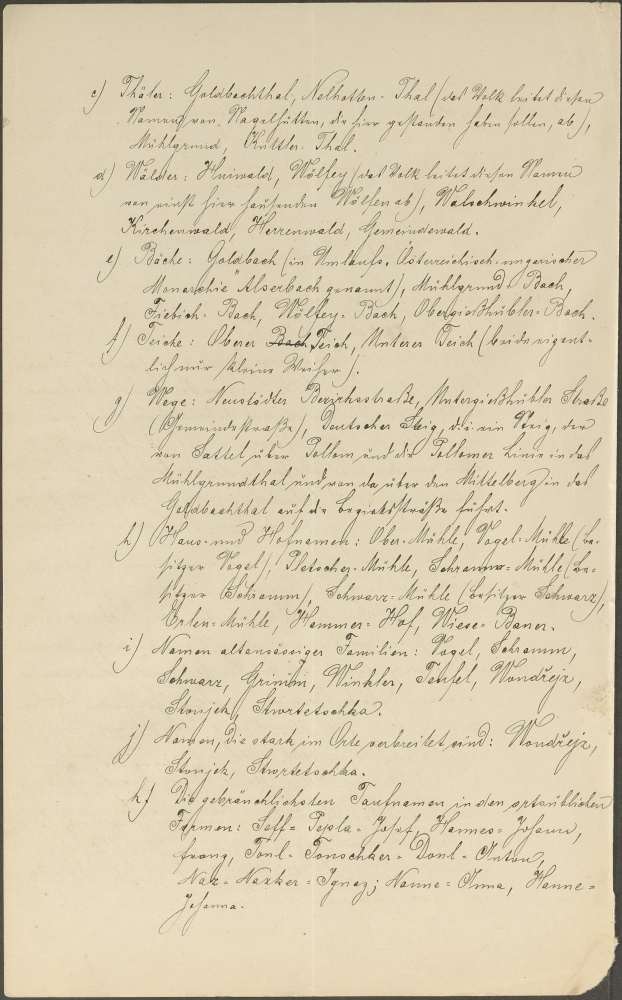 c) Thäler: Goldbachthal, Nelhotten-Thal (das Volk leitet diesen
Namen von Nagelhütten, die hier gestanden haben sollen, ab),
Mühlgrund, Kuttler-Thal.
d) Wälder: Huiwald, Wölfey (das Volk leitet diesen Namen
von einst hier hausenden Wölfen ab), Walschwinkel,
Kirchenwald, Herrenwald, Gemeindewald.
e) Bäche: Goldbach (in Umlaufs. Österreichisch-ungarischer
Monarchie "Alserbach genannt), Mühlgrund-Bach,
Fiebich-Bach, Wölfey-Bach, Obergießhübler-Bach.
f) Teiche: Oberer Bach Teich, Unterer Teich (beide eigent-
lich nur kleine Weiher).
g) Wege: Neustädter Bezirksstraße, Untergießhübler Straße
(Gemeindestraße), Deutscher Steig, d.i. ein Steig, der
von Sattel über Pollom und die Pollomer Linie in das
Mühlgrundthal und von da über den Mittelberg in das
Goldbachthal auf die Bezirksstraße führt.
h) Haus- und Hofnamen: Ober-Mühle, Vogel-Mühle (Be-
sitzer Vogel), Pletscher-Mühle, Schramm-Mühle (Be-
sitzer Schramm), Schwarz-Mühle (Besitzer Schwarz),
Erlen-Mühle, Hammer-Hof, Wiese-Bauer.
i) Namen altansässiger Familien: Vogel, Schramm,
Schwarz, Grimm, Winkler, Teufel, Wondřejz,
Stonjek, Skwrtetschka.
j) Namen, die stark im Orte verbreitet sind: Wondřejz,
Stonjek, Skwrtetschka.
k) Die gebräuchlichsten Taufnamen in den ortsüblichen
Formen: Seff- Pepla- Josef, Hannes- Johann,
franz, Tonl- Tonschker- Donl- Anton,
Naz- Nazker- Ignaz; Nanne- Anna, Hanne-
Johanna.